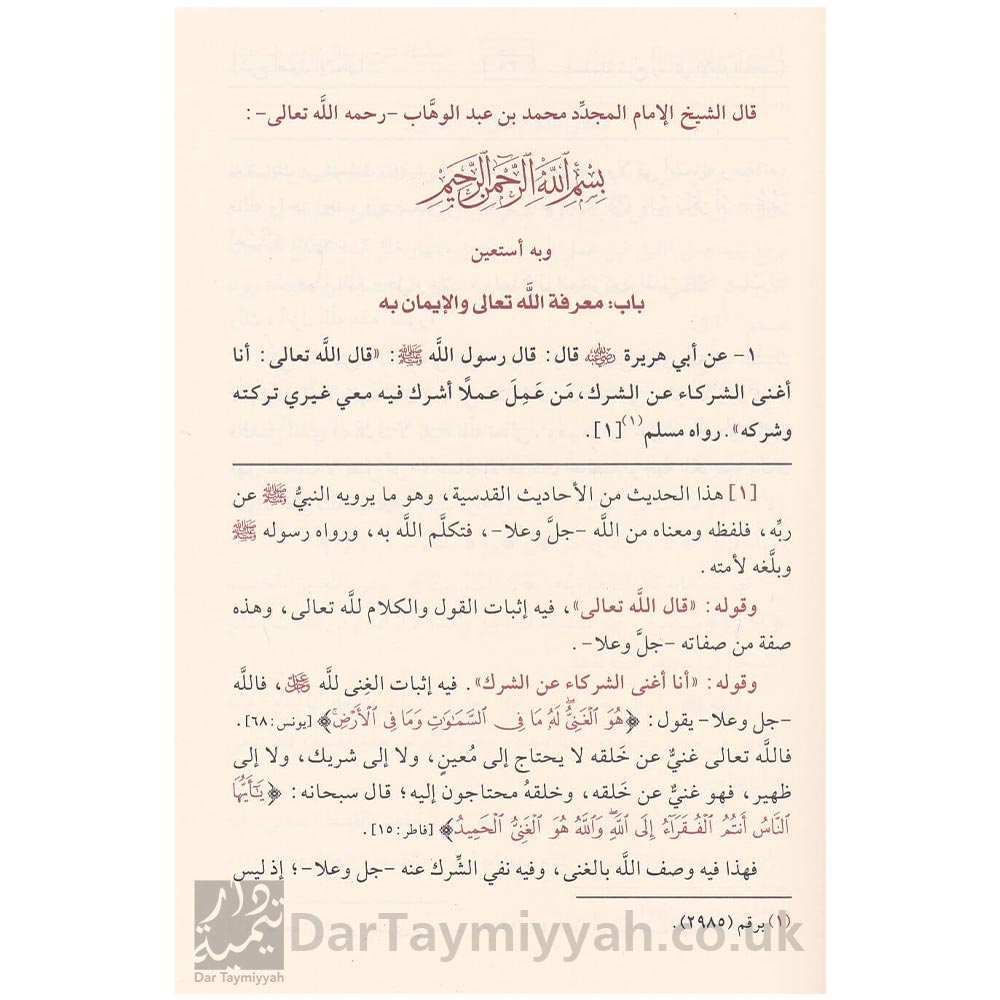 قال الشيخ الإمام المجدِّد محمد بن عبد الوهَّاب -رحمه اللَّه تعالى-:
بِسْمِ اللَّهِ الرَّحْمَنِ الرَّحِيمِ
وبه أستعين
باب: معرفة اللَّه تعالى والإيمان به
١- عن أبي هريرة رضي الله عنه قال: قال رسول اللَّه ﷺ: «قال اللَّه تعالى: أنا
أغنى الشركاء عن الشرك، مَن عَمِلَ عملًا أشرك فيه معي غيري تركته
وشركه». رواه مسلم(١)[١].
[١] هذا الحديث من الأحاديث القدسية، وهو ما يرويه النبيُّ ﷺ عن
ربِّه، فلفظه ومعناه من اللَّه -جلَّ وعلا-، فتكلَّم اللَّه به، ورواه رسوله ﷺ
وبلَّغه لأمته.
وقوله: «قال اللَّه تعالى»، فيه إثبات القول والكلام للَّه تعالى، وهذه
صفة من صفاته -جلَّ وعلا-.
وقوله: «أنا أغنى الشركاء عن الشرك». فيه إثبات الغِنى للَّه عز وجل، فاللَّه
-جل وعلا- يقول: ﴿هُوَ ٱلْغَنِيُّ ۖ لَهُۥ مَا فِى ٱلسَّمَـٰوَٰتِ وَمَا فِى ٱلْأَرْضِ ۚ﴾ [يونس: ٦٨].
فاللَّه تعالى غنيٌّ عن خَلقه لا يحتاج إلى مُعينٍ، ولا إلى شريك، ولا إلى
ظهير، فهو غنيٌّ عن خَلقه، وخلقهُ محتاجون إليه؛ قال سبحانه: ﴿يَـٰٓأَيُّهَا
ٱلنَّاسُ أَنتُمُ ٱلْفُقَرَآءُ إِلَى ٱللَّهِ ۖ وَٱللَّهُ هُوَ ٱلْغَنِىُّ ٱلْحَمِيدُ﴾ [فاطر: ١٥].
فهذا فيه وصف اللَّه بالغنى، وفيه نفي الشِّرك عنه -جل وعلا-؛ إذ ليس
(١) برقم (٢٩٨٥).
دار تيمية
Dar Taymiyyah
DarTaymiyyah.co.uk